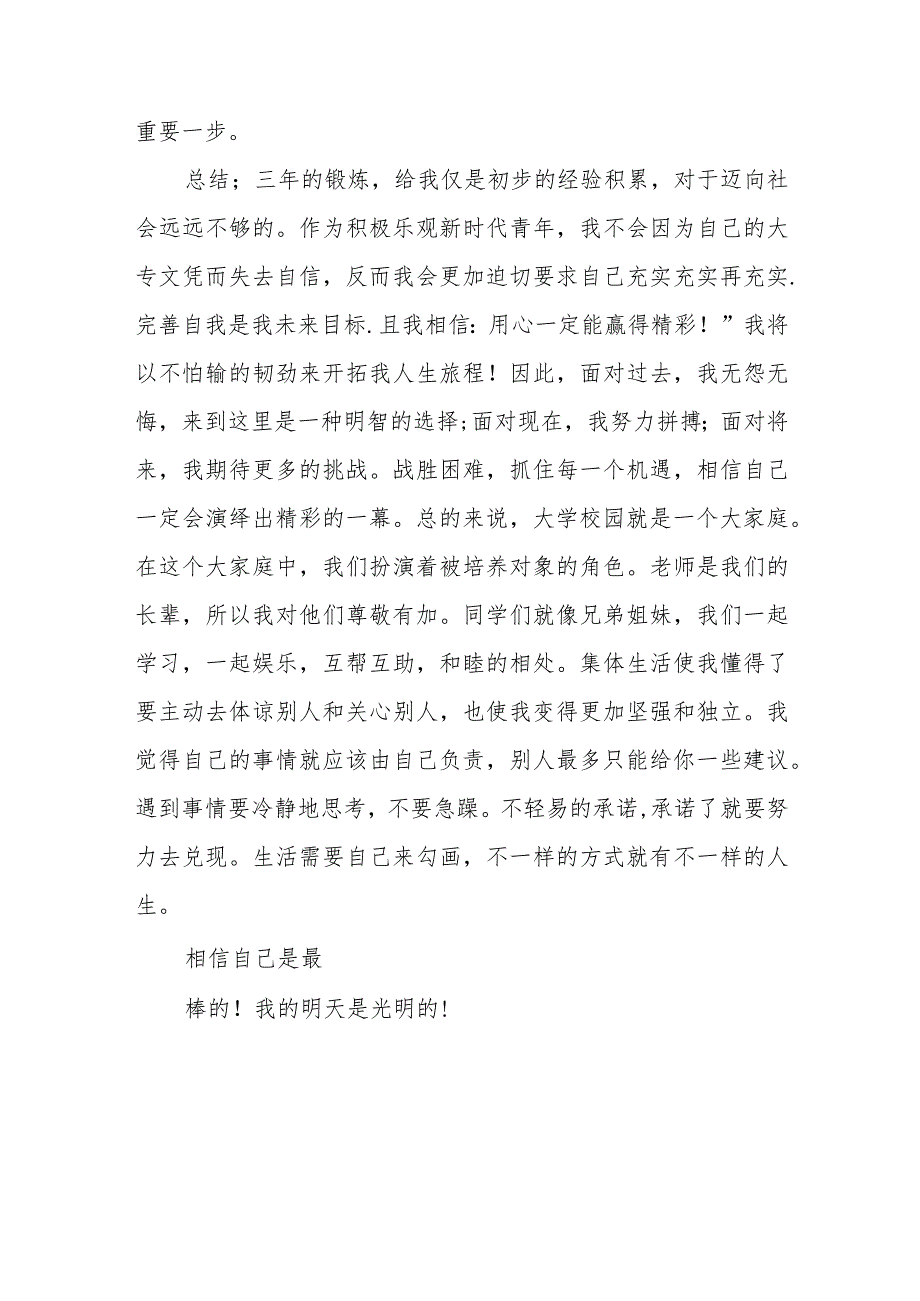 重要一步。
总结；三年的锻炼，给我仅是初步的经验积累，对于迈向社
会远远不够的。作为积极乐观新时代青年，我不会因为自己的大
专文凭而失去自信，反而我会更加迫切要求自己充实充实再充实.
完善自我是我未来目标.且我相信：用心一定能赢得精彩！”我将
以不怕输的韧劲来开拓我人生旅程！因此，面对过去，我无怨无
悔，来到这里是一种明智的选择;面对现在，我努力拼搏；面对将
来，我期待更多的挑战。战胜困难，抓住每一个机遇，相信自己
一定会演绎出精彩的一幕。总的来说，大学校园就是一个大家庭。
在这个大家庭中，我们扮演着被培养对象的角色。老师是我们的
长辈，所以我对他们尊敬有加。同学们就像兄弟姐妹，我们一起
学习，一起娱乐，互帮互助，和睦的相处。集体生活使我懂得了
要主动去体谅别人和关心别人，也使我变得更加坚强和独立。我
觉得自己的事情就应该由自己负责，别人最多只能给你一些建议。
遇到事情要冷静地思考，不要急躁。不轻易的承诺,承诺了就要努
力去兑现。生活需要自己来勾画，不一样的方式就有不一样的人
生。
相信自己是最
棒的！我的明天是光明的!